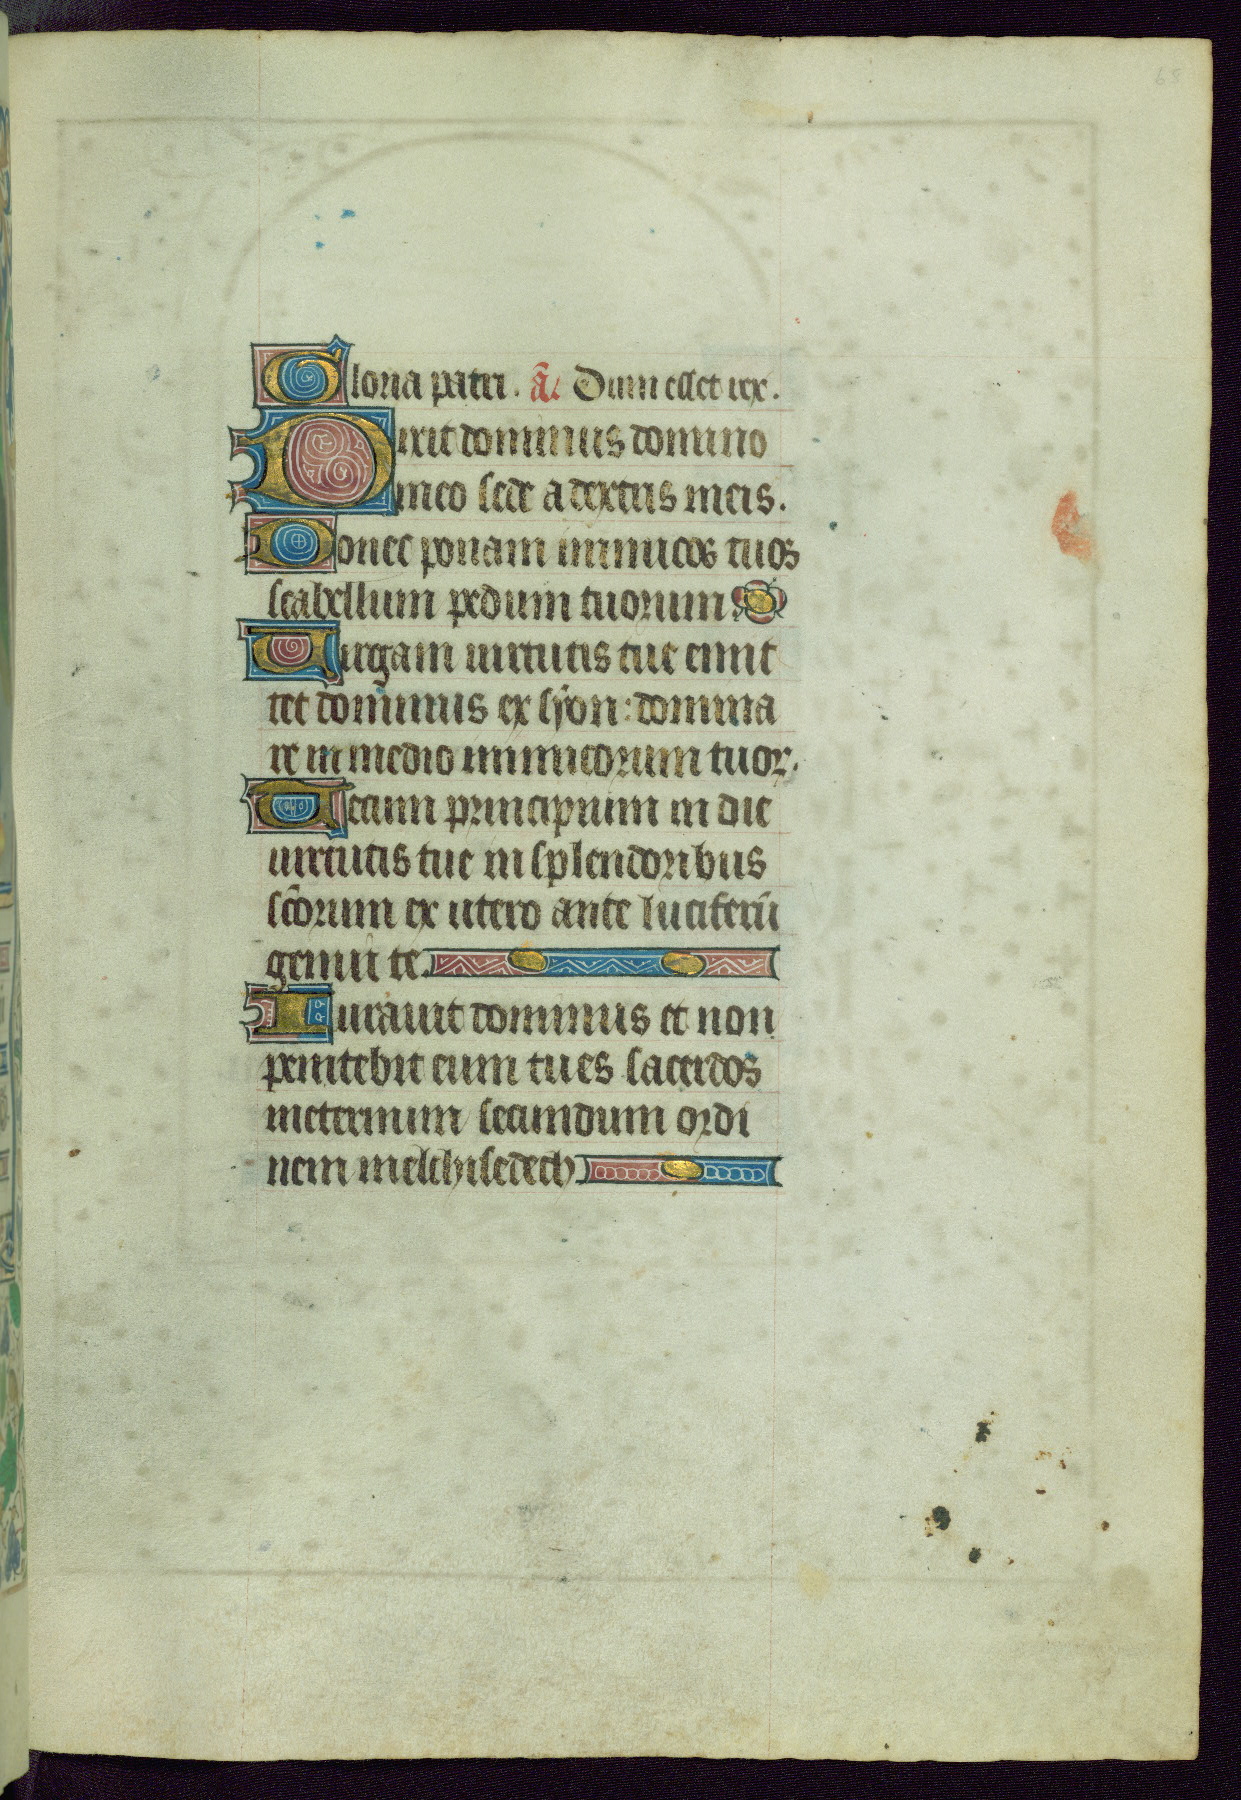 Gloria patri. an̄. Dum esset rex.
Dixit dominus domino
meo sede a dextris meis.
Donec ponam inimicos tuos
scabellum pedum tuorum
Uirgam uirtutis tue emit
tet dominus ex syon: domina
re in medio inimicorum tuor.
Tecum principium in die
uirtutis tue in splendoribus
sc̄orum ex utero ante luciferū
genui te.
Iurauit dominus et non
penitebit eum tu es sacerdos
ineternum secundum ordi
nem melchisedech.